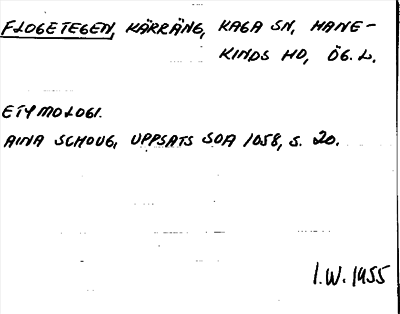 FLOGETEGEN, KÄRRÄNG, KAGA SN, HANE-
KINDS HD, ÖG. L.
ETYMOLOGI.
AINA SCHOUG, UPPSATS SOA 1058, S. 20.
I.W. 1955